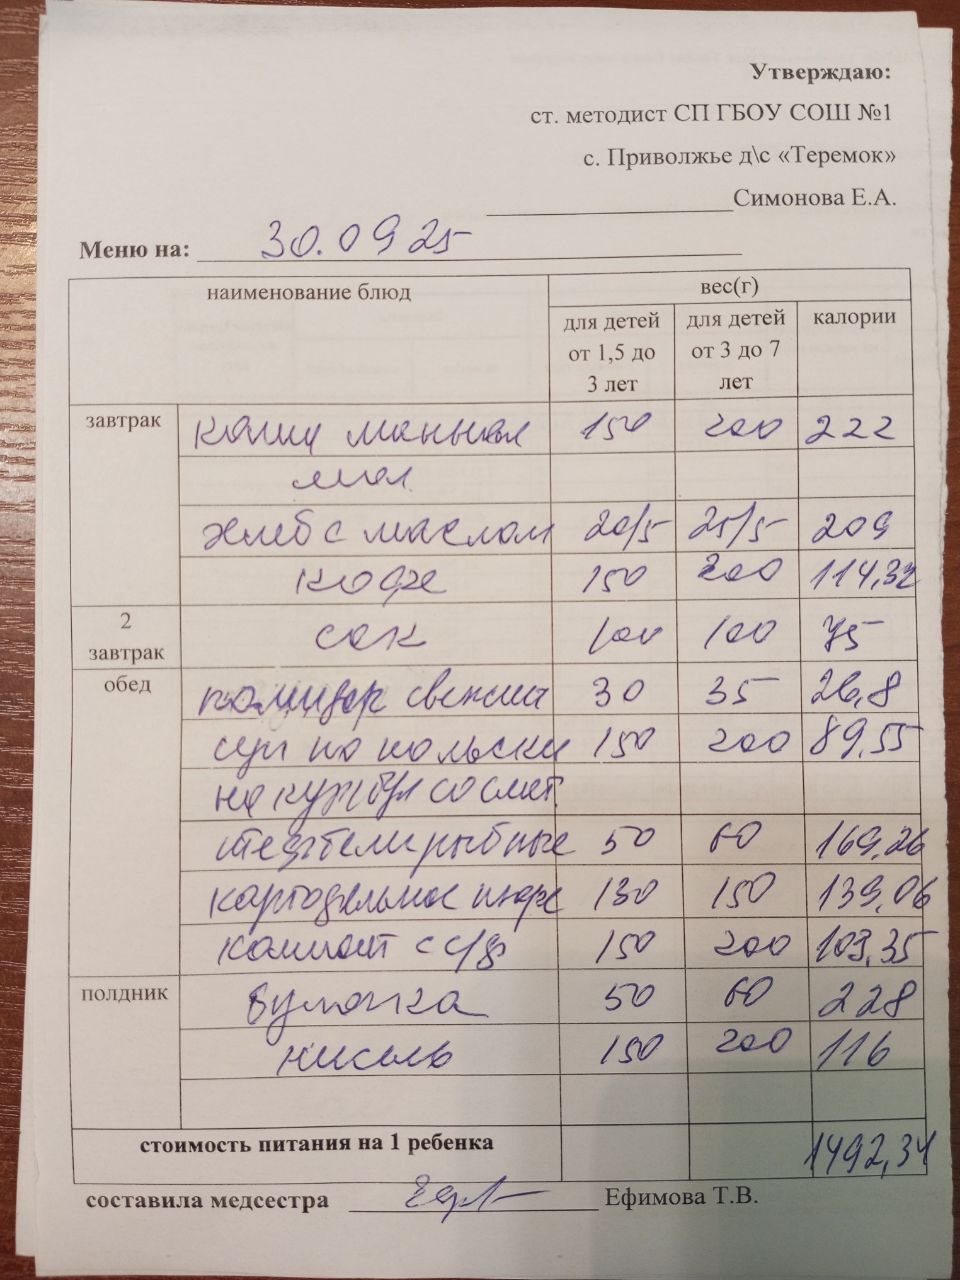 Утверждаю:
ст. методист СП ГБОУ СОШ №1
с. Приволжье д\с «Теремок»
Симонова Е.А.
Меню на: 30.09 25
наименование блюд вес(г)
для детей от 1,5 до 3 лет для детей от 3 до 7 лет калории
завтрак каша манная 150 200 222
мол
хлеб с маслом 20/5 25/5 209
кофе 150 200 114,32
2 завтрак сок 100 100 75
обед помидор свежий 30 35 26,8
суп по польски 150 200 89,55
на кур бул со смет.
тефтели рыбные 50 60 169,26
картофельное пюре 130 150 139,06
компот с с/ф 150 200 103,35
полдник булочка 50 60 228
кисель 150 200 116
стоимость питания на 1 ребенка 1492,34
составила медсестра Ефимова Т.В.